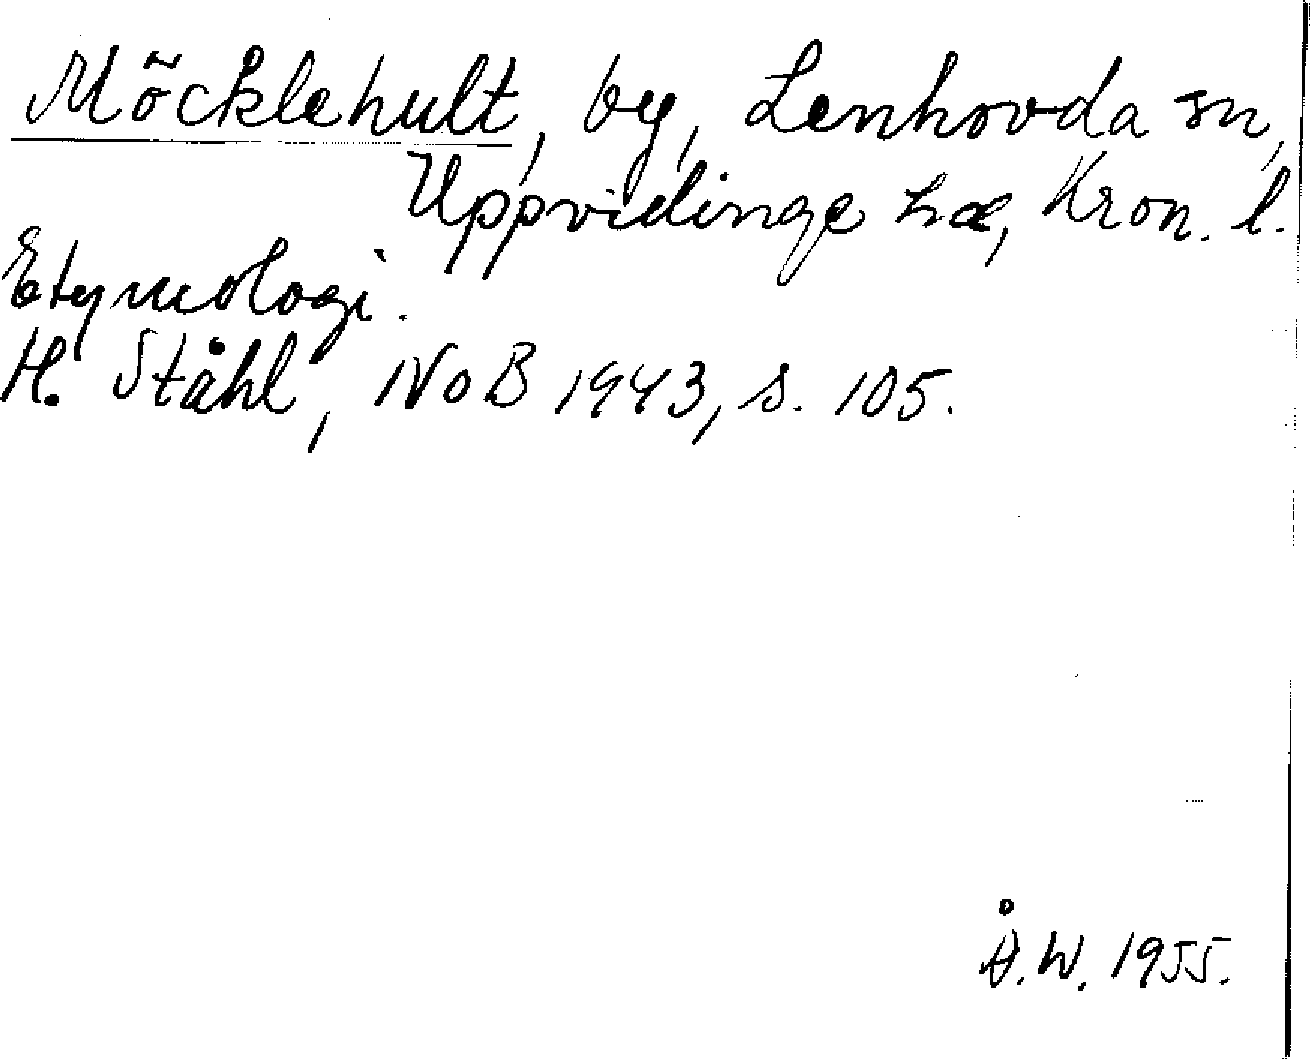 Möcklehult, by, Lenhovda sn,
Uppvidinge hd, Kron. l.
Etymologi.
H. Ståhl, NoB 1943, s. 105.
Å.W. 1955.